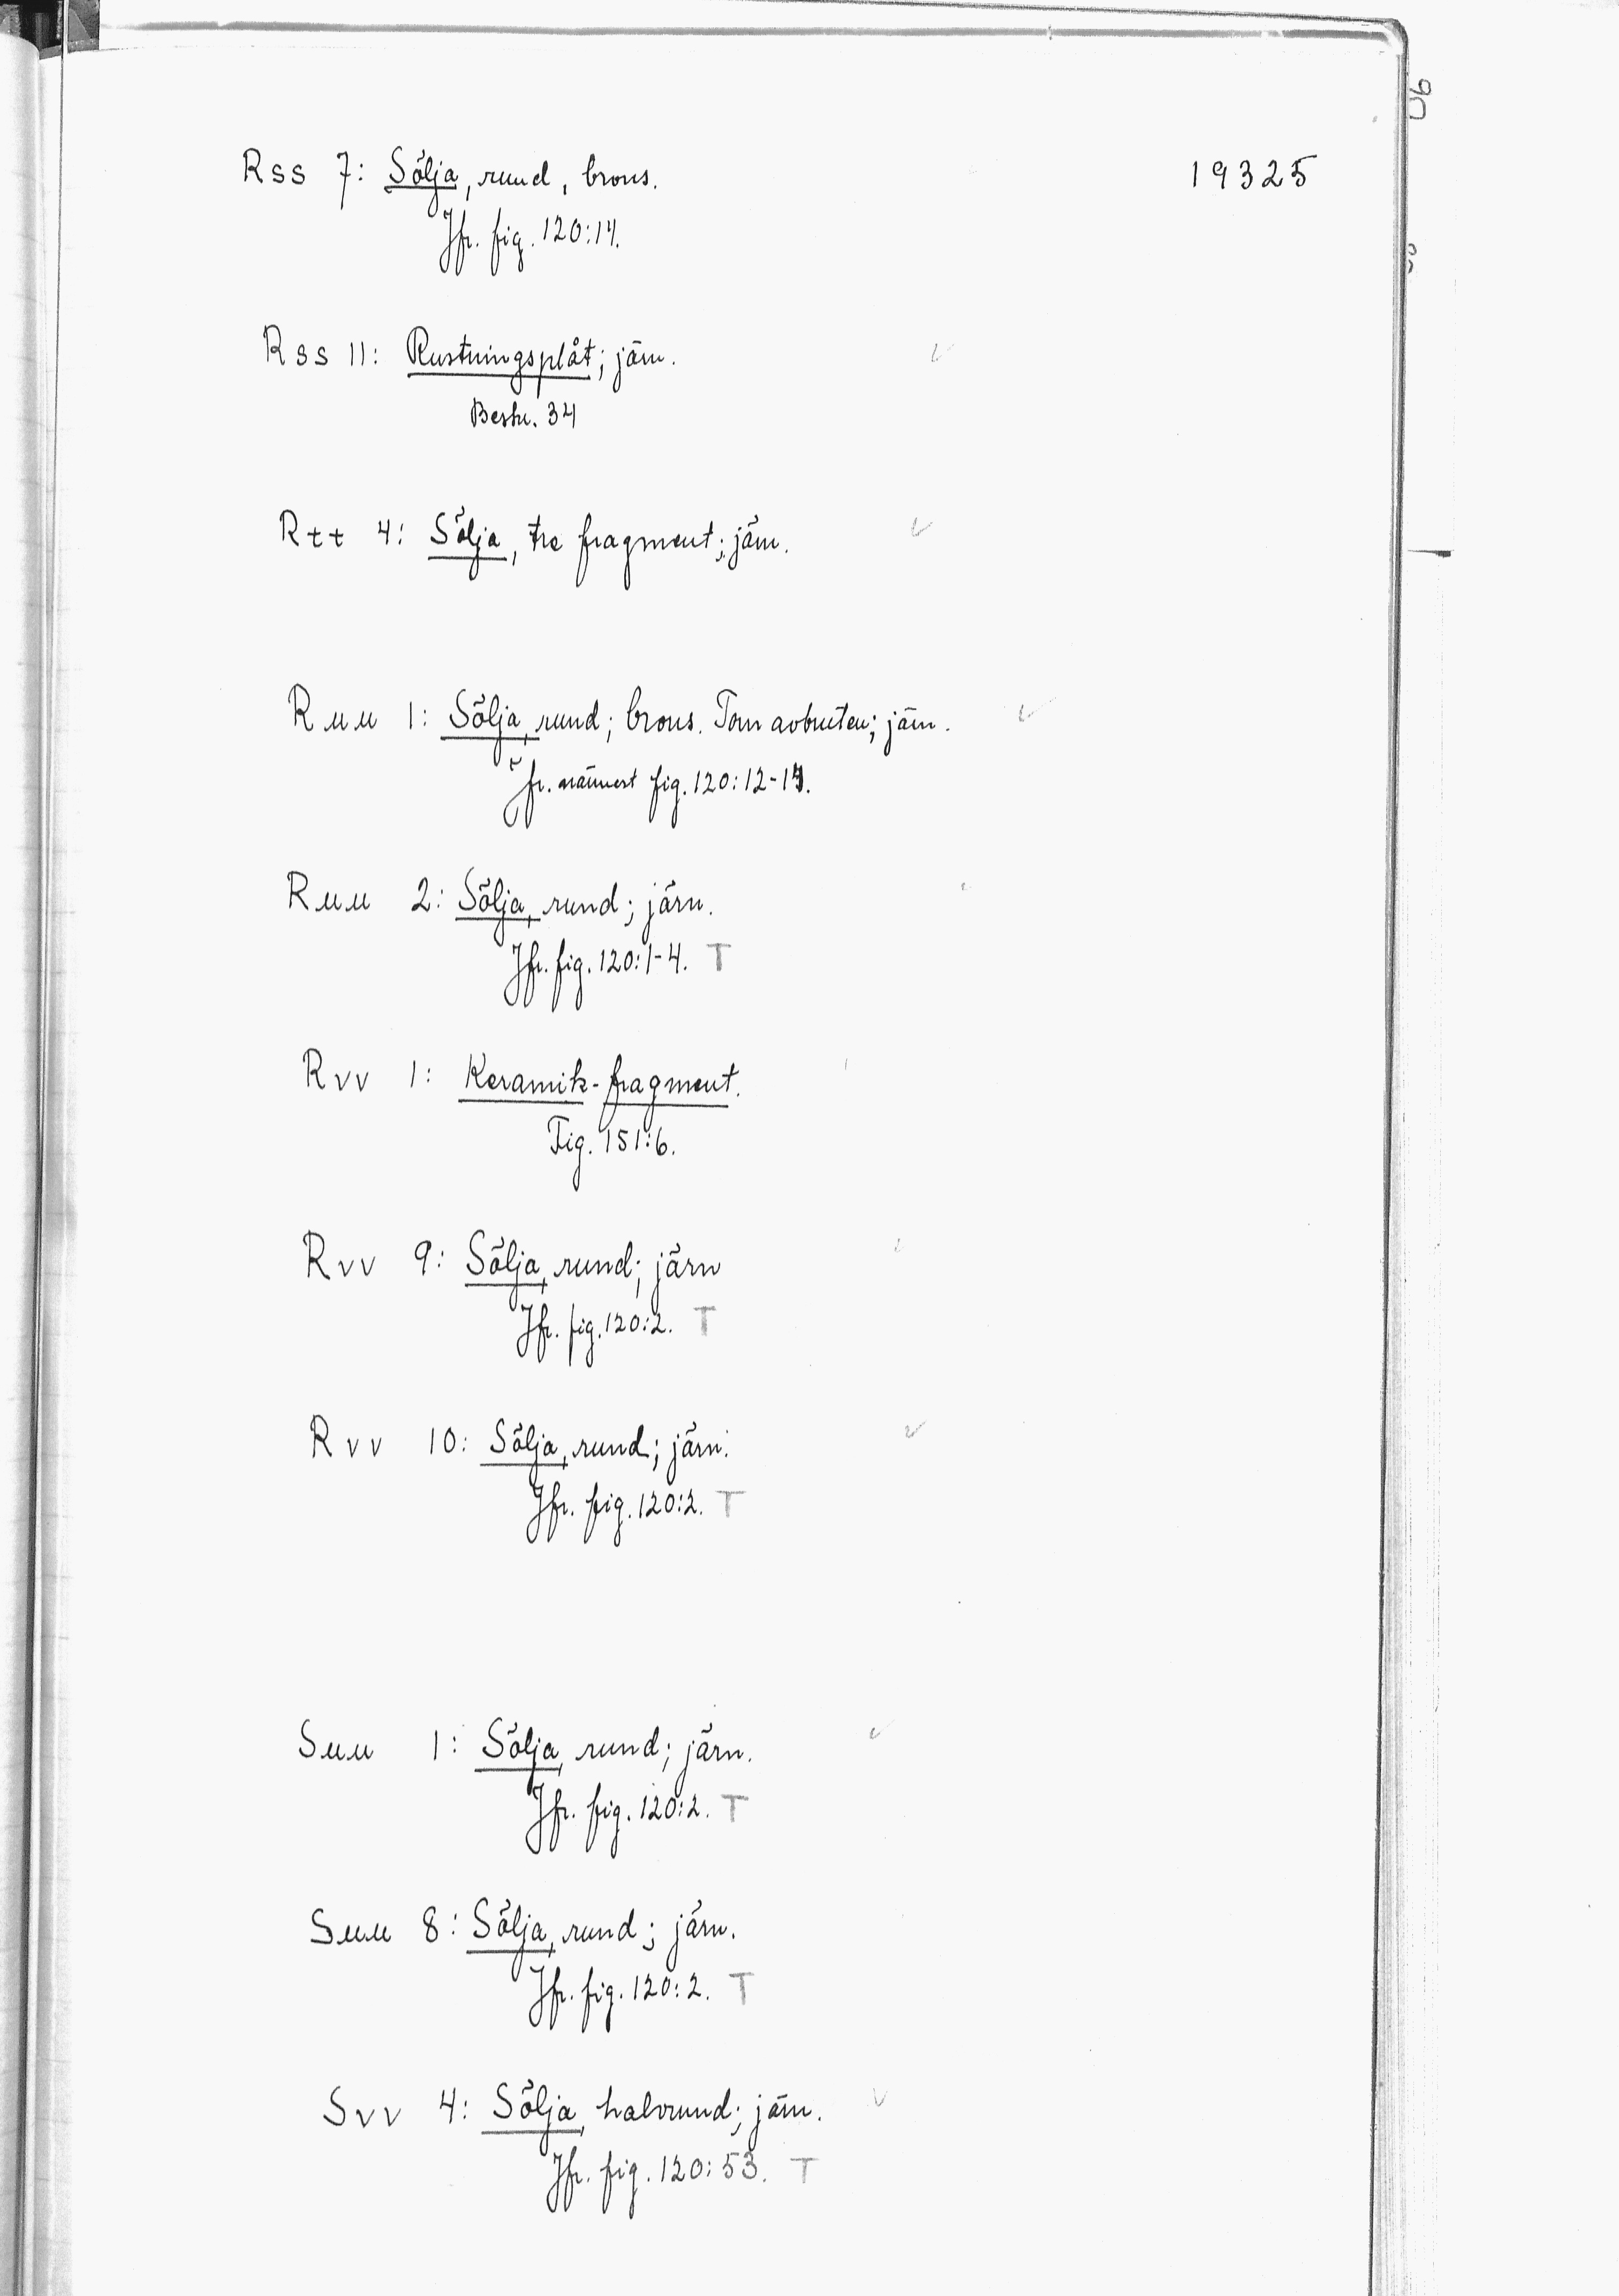 Rss 7: Sölja, rund, brons.
19325
Jfr. fig. 120:14.
Rss 11: Rustningsplåt; järn.
Beskr. 34
Rtt 4: Sölja, tre fragment; järn.
Ruu 1: Sölja, rund; brons. Torn avbruten; järn.
Jfr. närmast fig. 120:12-14.
Ruu 2: Sölja, rund; järn.
Jfr. fig. 120:1-4. T
Rvv 1: Keramik-fragment.
Fig. 151:6.
Rvv 9: Sölja, rund; järn
Jfr. fig. 120:2. T
Rvv 10: Sölja, rund; järn.
Jfr. fig. 120:2. T
Suu 1: Sölja, rund; järn.
Jfr. fig. 120:2. T
Suu 8: Sölja, rund; järn.
Jfr. fig. 120:2. T
Svv 4: Sölja, halvrund; järn.
Jfr. fig. 120:53. T